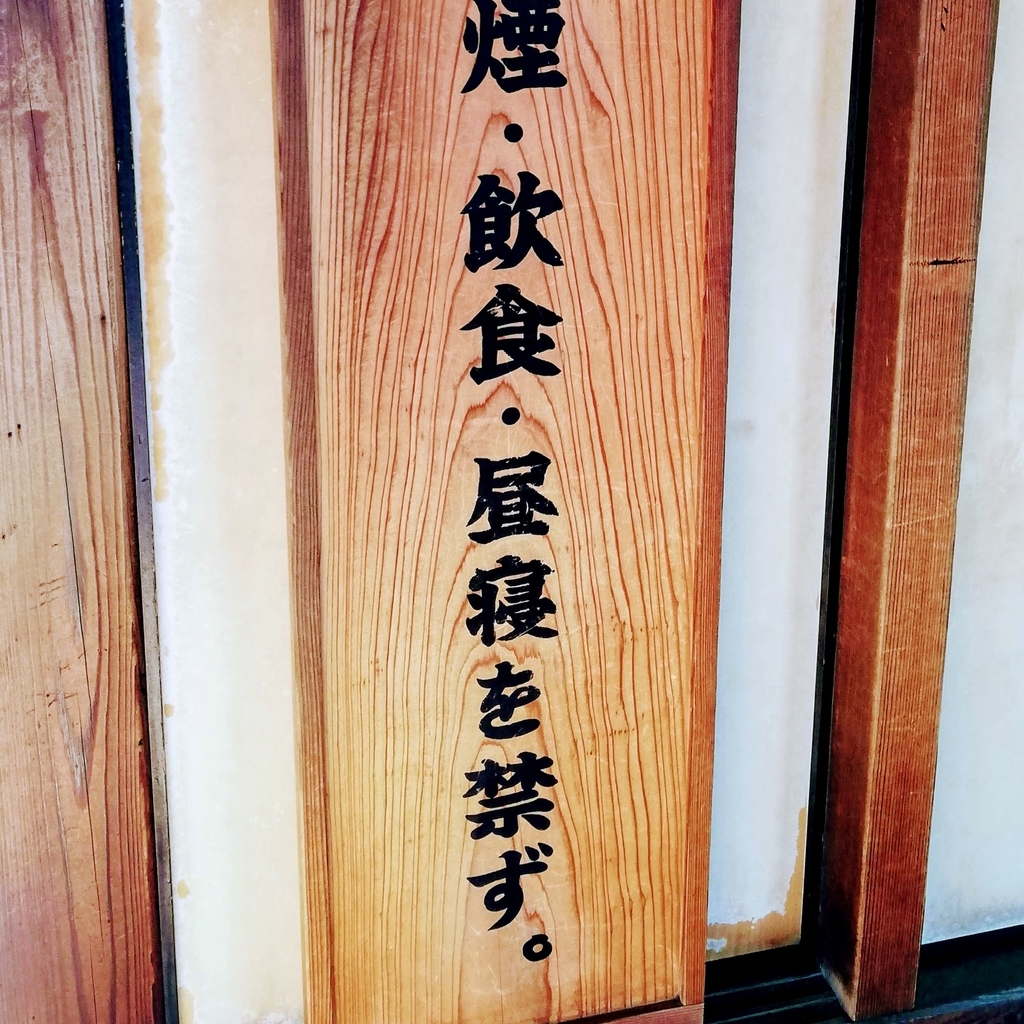 煙・飲食・昼寝を禁ず。